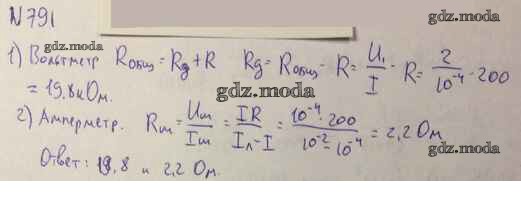 N 791
gdz.moda
1) Вольтметр Rобщ = Rg + R Rg = Rобщ - R = U₁/I - R = 2/10⁻⁴ - 200
gdz.moda
= 19,8 кОм.
gdz.moda
2) Амперметр. Rш = Uш/Iш = IR/(Iл-I) = 10⁻⁴·200/(10⁻²-10⁻⁴) = 2,2 Ом
gdz.moda
Ответ: 19,8 и 2,2 Ом.